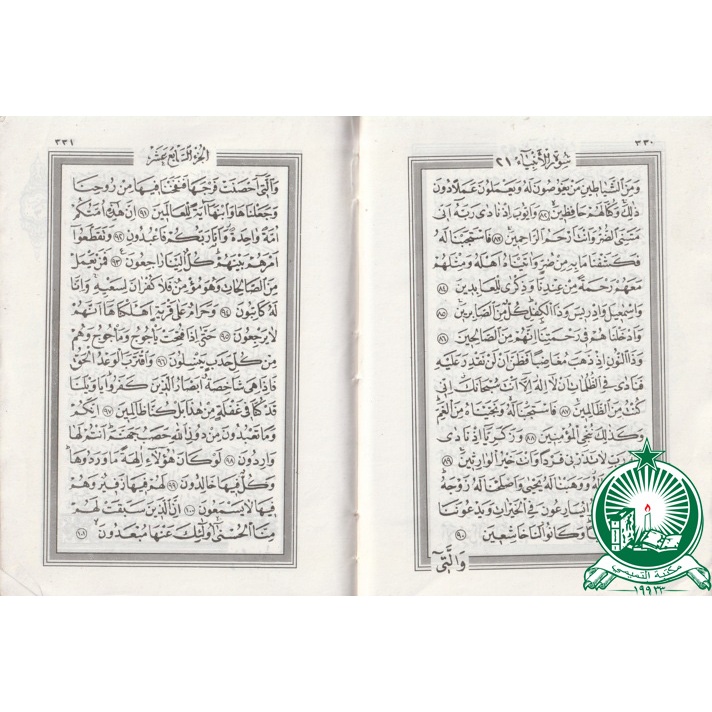 ٣٣٠
سورة الأنبياء ٢١
وَمِنَ الشَّيَاطِينِ مَنْ يَغُوصُونَ لَهُ وَيَعْمَلُونَ عَمَلًا دُونَ
ذٰلِكَ وَكُنَّا لَهُمْ حَافِظِينَ ٨٢ وَاَيُّوبَ اِذْ نَادٰى رَبَّهُ اَنِّى
مَسَّنِىَ الضُّرُّ وَاَنْتَ اَرْحَمُ الرَّاحِمِينَ ٨٣ فَاسْتَجَبْنَا لَهُ
فَكَشَفْنَا مَابِهِ مِنْ ضُرٍّ وَاٰتَيْنَاهُ اَهْلَهُ وَمِثْلَهُمْ
مَعَهُمْ رَحْمَةً مِنْ عِنْدِنَا وَذِكْرٰى لِلْعَابِدِينَ ٨٤
وَاِسْمٰعِيلَ وَاِدْرِيسَ وَذَا الْكِفْلِ كُلٌّ مِنَ الصَّابِرِينَ ٨٥
وَاَدْخَلْنَاهُمْ فِى رَحْمَتِنَا اِنَّهُمْ مِنَ الصَّالِحِينَ ٨٦
وَذَا النُّونِ اِذْ ذَهَبَ مُغَاضِبًا فَظَنَّ اَنْ لَنْ نَقْدِرَ عَلَيْهِ
فَنَادٰى فِى الظُّلُمَاتِ اَنْ لَا اِلٰهَ اِلَّا اَنْتَ سُبْحَانَكَ اِنِّى
كُنْتُ مِنَ الظَّالِمِينَ ٨٧ فَاسْتَجَبْنَا لَهُ وَنَجَّيْنَاهُ مِنَ الْغَمِّ
وَكَذٰلِكَ نُنْجِى الْمُؤْمِنِينَ ٨٨ وَزَكَرِيَّا اِذْ نَادٰى
رَبِّ لَا تَذَرْنِى فَرْدًا وَاَنْتَ خَيْرُ الْوَارِثِينَ ٨٩
لَهُ وَوَهَبْنَا لَهُ يَحْيٰى وَاَصْلَحْنَا لَهُ زَوْجَهُ
يُسَارِعُونَ فِى الْخَيْرَاتِ وَيَدْعُونَنَا
وَكَانُوا لَنَا خَاشِعِينَ ٩٠
وَالَّتِى
٣٣١
الجزء السابع عشر
وَالَّتِى اَحْصَنَتْ فَرْجَهَا فَنَفَخْنَا فِيهَا مِنْ رُوحِنَا
وَجَعَلْنَاهَا وَابْنَهَا اٰيَةً لِلْعَالَمِينَ ٩١ اِنَّ هٰذِهِ اُمَّتُكُمْ
اُمَّةً وَاحِدَةً وَاَنَا رَبُّكُمْ فَاعْبُدُونِ ٩٢ وَتَقَطَّعُوا
اَمْرَهُمْ بَيْنَهُمْ كُلٌّ اِلَيْنَا رَاجِعُونَ ٩٣ فَمَنْ يَعْمَلْ
مِنَ الصَّالِحَاتِ وَهُوَ مُؤْمِنٌ فَلَا كُفْرَانَ لِسَعْيِهِ وَاِنَّا
لَهُ كَاتِبُونَ ٩٤ وَحَرَامٌ عَلٰى قَرْيَةٍ اَهْلَكْنَاهَا اَنَّهُمْ
لَا يَرْجِعُونَ ٩٥ حَتّٰى اِذَا فُتِحَتْ يَاْجُوجُ وَمَاْجُوجُ وَهُمْ
مِنْ كُلِّ حَدَبٍ يَنْسِلُونَ ٩٦ وَاقْتَرَبَ الْوَعْدُ الْحَقُّ
فَاِذَا هِىَ شَاخِصَةٌ اَبْصَارُ الَّذِينَ كَفَرُوا يَا وَيْلَنَا
قَدْ كُنَّا فِى غَفْلَةٍ مِنْ هٰذَا بَلْ كُنَّا ظَالِمِينَ ٩٧ اِنَّكُمْ
وَمَا تَعْبُدُونَ مِنْ دُونِ اللّٰهِ حَصَبُ جَهَنَّمَ اَنْتُمْ لَهَا
وَارِدُونَ ٩٨ لَوْ كَانَ هٰؤُلَاءِ اٰلِهَةً مَا وَرَدُوهَا
وَكُلٌّ فِيهَا خَالِدُونَ ٩٩ لَهُمْ فِيهَا زَفِيرٌ وَهُمْ
فِيهَا لَا يَسْمَعُونَ ١٠٠ اِنَّ الَّذِينَ سَبَقَتْ لَهُمْ
مِنَّا الْحُسْنٰى اُولٰئِكَ عَنْهَا مُبْعَدُونَ ١٠١
مكتبة التميمي